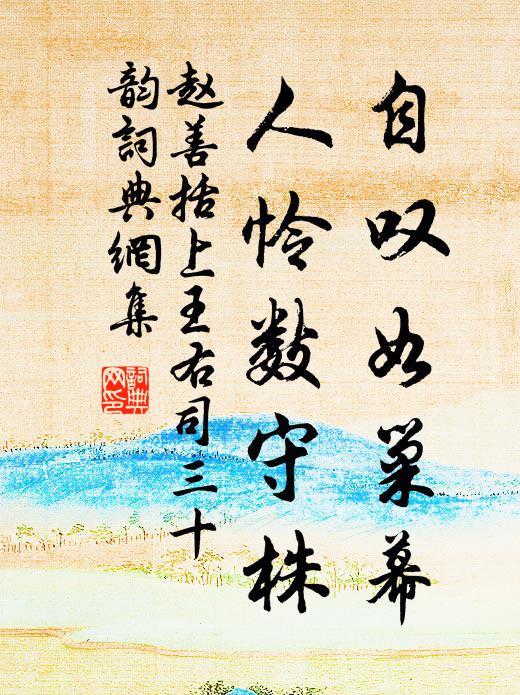 自叹如巢幕
人怜数守株
赵善括上王右司三十
韵詞典網集
詞典
网印